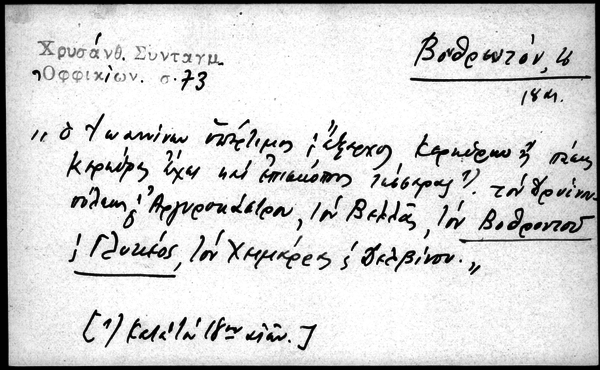 Χρυσάνθ. Συνταγμ.
Ὀφφικίων. σ. 73
Βοθροντόν, τό
18 αι.
„ ὁ Ἰωαννίνων ὑπέρτιμος ἔξαρχος
Κερκύρας ἔχει καί ἐπισκόπους τέσσαρας 1). τόν Δρυϊνου-
πόλεως Ἀργυροκάστρου, τόν Βελλᾶς, τόν Βοθροντοῦ
Γλυκέος, τόν Χειμάρρας Δελβίνου. „
[1) Κατά τόν 18ον αἰῶν.]